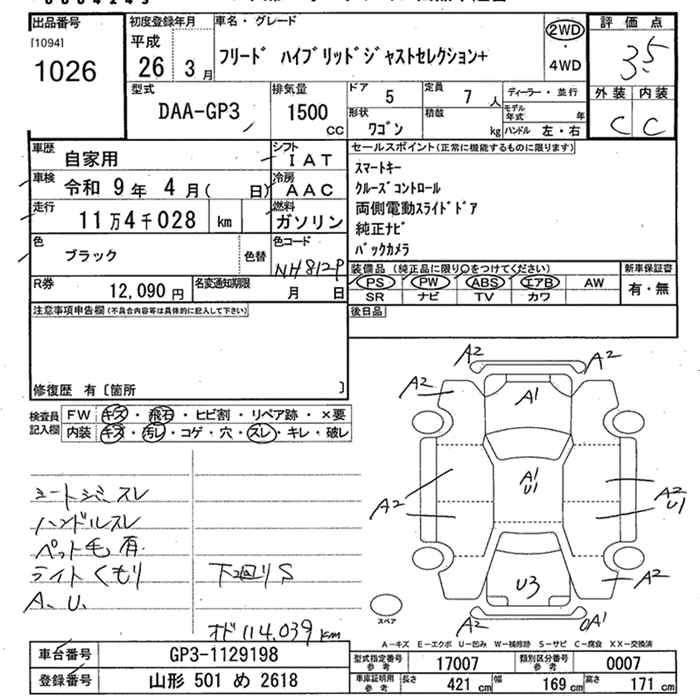 出品番号
[1094]
1026
初度登録年月
平成
26 3月
車名・グレード
フリード ハイブリッドジャストセレクション+
2WD
・
4WD
評価点
3.5
外装 内装
C C
型式
DAA-GP3
排気量
1500
CC
ドア 5
定員 7 人
形状
ワゴン
積載
kg
ディーラー・並行
モデル年式 年
ハンドル 左・右
車歴 自家用
シフト
IAT
車検 令和 9年 4月( 日)
冷房
AAC
走行 11万4千028 km
燃料
ガソリン
色 ブラック 色替
色コード
NH812-P
R券 12,090円
名変通知期限
月 日
セールスポイント(正常に機能するものに限ります)
スマートキー
クルーズコントロール
両側電動スライドドア
純正ナビ
バックカメラ
装備品(純正品に限り○をつけてください)
PS PW ABS エアB AW
SR ナビ TV カワ
新車保証書
有・無
後日品
注意事項申告欄(不具合内容等は具体的に記入して下さい)
修復歴 有〔箇所 〕
検査員記入欄
FW キズ・飛石・ヒビ割・リペア跡・×要
内装 キズ・汚レ・コゲ・穴・スレ・キレ・破レ
シートシミスレ
ハンドルスレ
ペット毛有
ライトくもり
下回りS
A.U.
オド114.039km
A2
A2
A2
A1
A1
U1
A2
A2
U1
A2
U3
A1
スペア
A-キズ E-エクボ U-凹み W-補修跡 S-サビ C-腐食 XX-交換済
車台番号 GP3-1129198
登録番号 山形 501 め 2618
型式指定番号
参考
17007
類別区分番号
参考
0007
車庫証明用
参考
長さ 421cm 幅 169cm 高さ 171cm